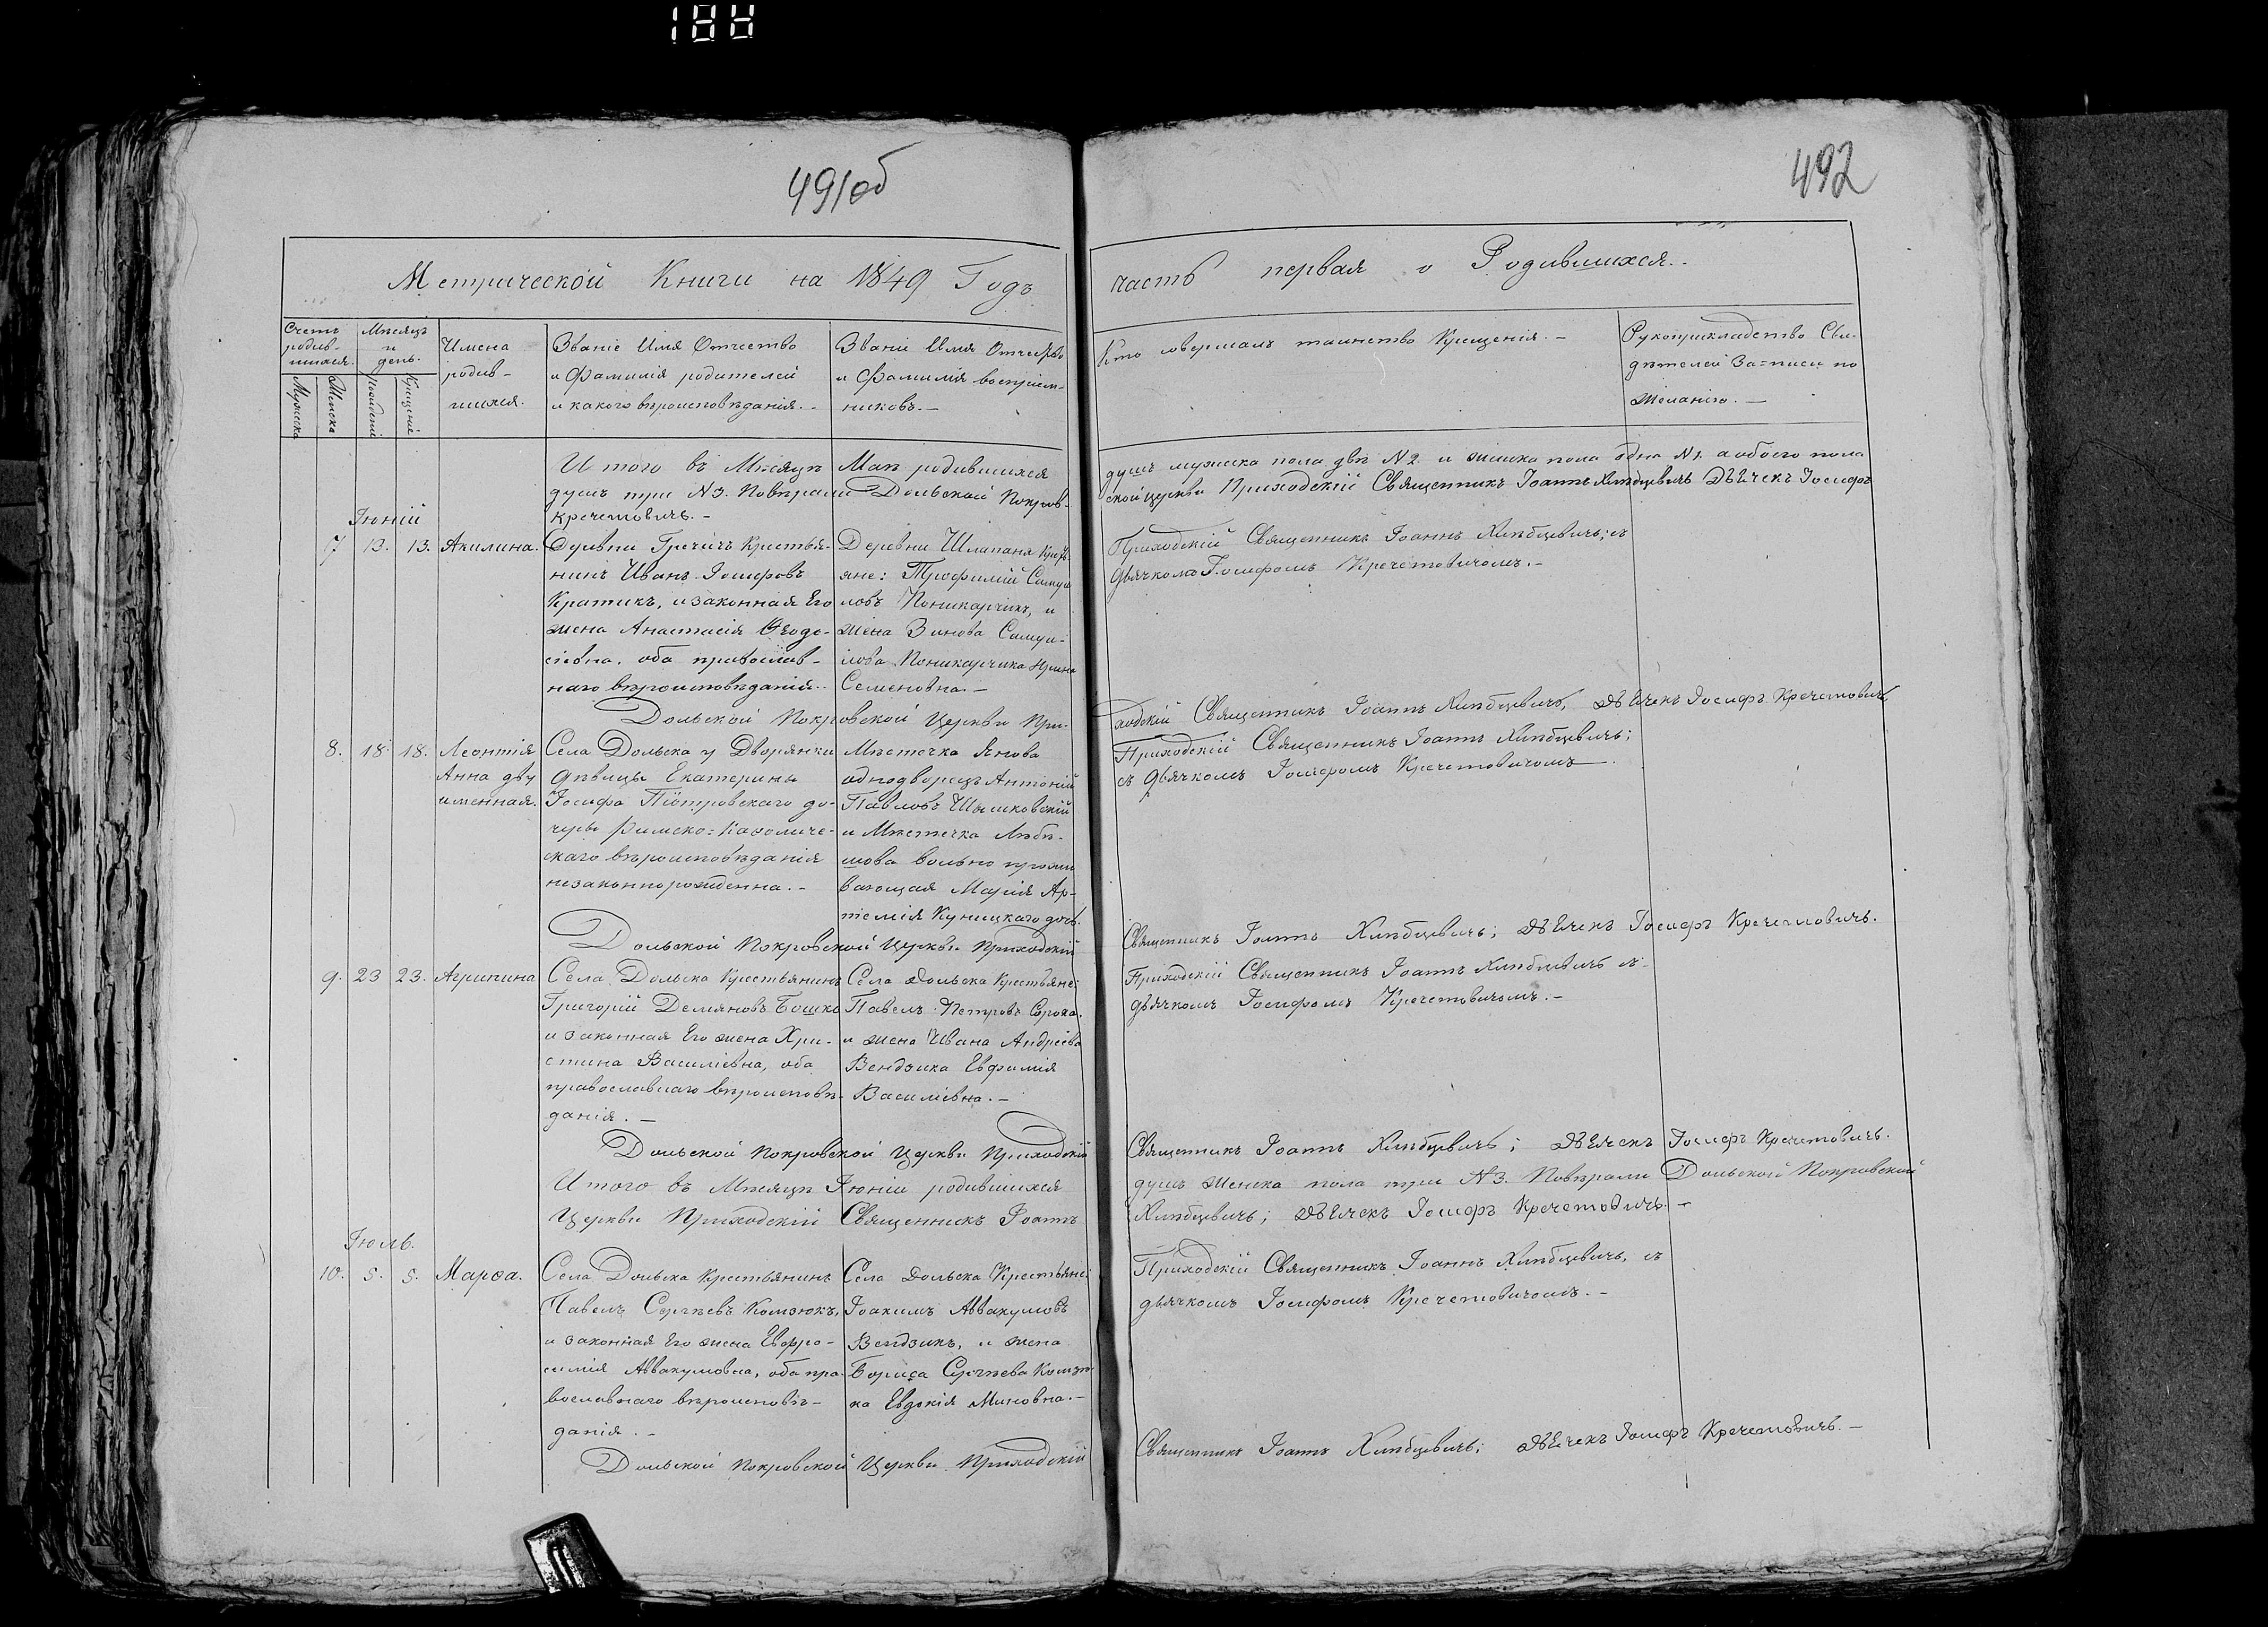 188
491об
492
Метрической Книги на 1849 Годъ
часть первая о Родившихся.
Счетъ родив-шихся.
Мужеска
Женска
Мѣсяцъ и день.
Рождения
Крещение
Имена
родив-
шихся.
Званіе Имя Отчество
и Фамилія родителей
и какого вѣроисповѣданія.-
Званіе Имя Отчество
и Фамилія воспріем-
никовъ.-
Кто совершалъ таинство Крещенія.-
Рукоприкладство Сви-
дѣтелей Записи по
желанію.-
Итого въ Мѣсяцѣ Маѣ родившихся
душъ три №3. Повѣряли Дольской Покров-
кречетовичъ.-
душъ мужеска пола двѣ №2 и женска пола одна №1. а обоего пола
ской церкви Приходскій Священникъ Іоаннъ Хлѣбцевичъ Дьячекъ Іосифъ
Іюній
7 13. 13. Акилина.
Деревни Гречичъ Крестья-
нинъ Иванъ Іосифовъ
Кратикъ, и законная Его
жена Анастасія Ѳеодо-
сіевна, оба православ-
наго вѣроисповѣданія.-
Деревни Шлапаня Крест-
яне: Трофимій Самуи
ловъ Поникарчикъ, и
жена Зинова Самуи-
лова Поникарчика Ирина
Семеновна.-
Приходскій Священникъ Іоаннъ Хлѣбцевичъ; съ
дьячкомъ Іосифомъ Кречетовичомъ.-
Дольской Покровской Церкви При-
ходскій Священникъ Іоаннъ Хлѣбцевичъ, Дьячекъ Іосифъ Кречетовичъ
8. 18. 18. Леонтія
Анна дву
именная.
Села Дольска у Дворянки
Дѣвицы Екатерины
Іосифа Піотровскаго до-
чери Римско=Католиче-
скаго вѣроисповѣданія
незаконнорожденна.-
Мѣстечка Янова
однодворецъ Антоній
Павловъ Шышковскій
и Мѣстечка Любе-
шова вольно прожи
вающая Марія Ар-
темія Куницкаго дочь.
Приходскій Священникъ Іоаннъ Хлѣбцевичъ;
съ дьячкомъ Іосифомъ Кречетовичомъ
Дольской Покровской Церкви Приходскій
Священникъ Іоаннъ Хлѣбцевичъ; Дьячекъ Іосифъ Кречетовичъ.
9. 23 23. Агрипина
Села Дольска Крестьянинъ
Григорій Демяновъ Бошко
и законная Его жена Хри-
стина Василіевна, оба
православнаго вѣроисповѣ-
данія.-
Села Дольска Крестьяне:
Павелъ Петровъ Сорока.
и жена Ивана Андреева
Вендзика Евфимія
Василіевна.-
Приходскій Священникъ Іоаннъ Хлѣбцевичъ съ
дьячкомъ Іосифомъ Кречетовичомъ.-
Дольской Покровской Церкви Приходскій
Священникъ Іоаннъ Хлѣбцевичъ; Дьячекъ Іосифъ Кречетовичъ.
Итого въ Мѣсяцѣ Іюніи родившихся
Церкви Приходскій Священникъ Іоаннъ
душъ женска пола три №3. Повѣряли Дольской Покровской
Хлѣбцевичъ; Дьячекъ Іосифъ Кречетовичъ.-
Іюль.
10. 5. 5. Марѳа.
Села Дольска Крестьянинъ
Павелъ Сергѣевъ Комзюкъ,
и законная Его жена Евфро-
синія Аввакумовна, оба пра-
вославнаго вѣроисповѣ-
данія.-
Села Дольска Крестьяне:
Іоакимъ Аввакумовъ
Вендзикъ, и жена
Бориса Сергѣева Комзю
ка Евдокія Миновна.-
Приходскій Священникъ Іоаннъ Хлѣбцевичъ, съ
дьячкомъ Іосифомъ Кречетовичомъ.-
Дольской Покровской Церкви Приходскій
Священникъ Іоаннъ Хлѣбцевичъ; Дьячекъ Іосифъ Кречетовичъ.-